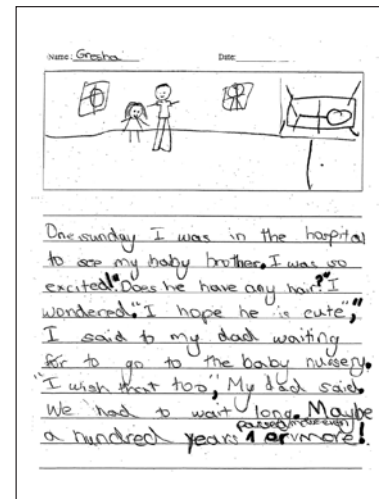 Name: Gresha Date:
One sunday I was in the hospital
to see my baby brother. I was so
excited! "Does he have any hair?" I
wondered. "I hope he is cute",
I said to my dad waiting
for to go to the baby nursery.
"I wish that too", My dad said.
We had to wait long. Maybe
a hundred years passed, maybe even
1 or more!